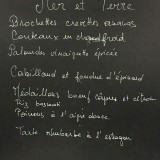 Mer et Terre
Brochettes crevettes ananas
Couteaux en chaud froid
Palourdes vinaigrette épicée
Cabillaud et fondue d'épinard
Médaillons boeuf câpres et citron
Riz basmati
Poivrons à l'aigre douce
Tarte rhubarbe à l'estragon